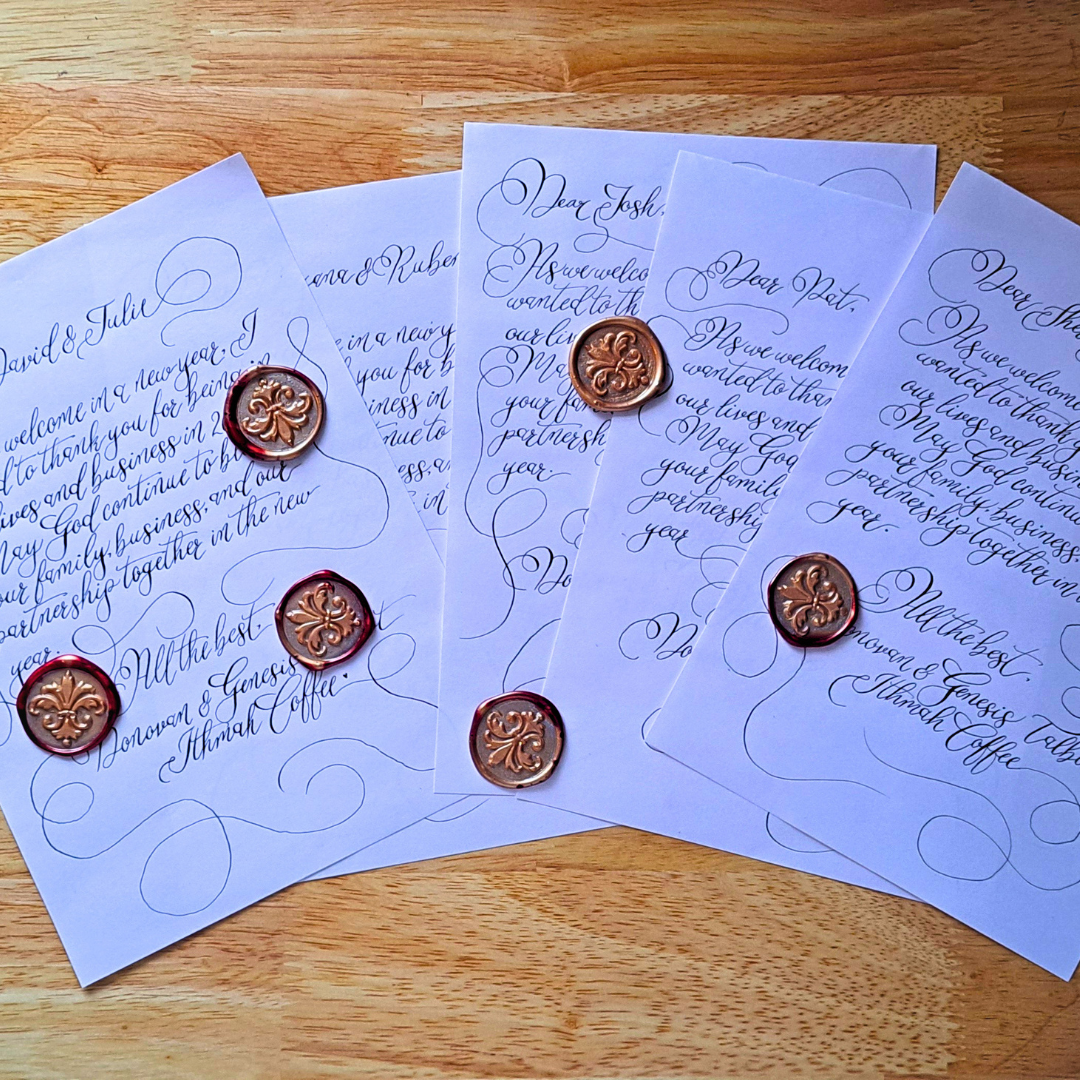 David & Julie
welcome in a new year, I
to thank you for being in
lives and business in 2
May God continue to bl
our family, business, and our
partnership together in the new
year.
All the best,
Donovan & Genesis
Ithmah Coffee.
ana & Ruben
e in a new y
you for b
iness in
nue to
ss, an
in
Dear Josh,
As we welco
wanted to th
our liv
May
your fam
partnersh
year.
Do
Dear Pat,
As we welcom
wanted to than
our lives and
May God
your family
partnership
year
Do
Dear She
As we welcome
wanted to thank y
our lives and busin
May God continu
your family, business,
partnership together in
year.
All the best,
onovan & Genesis Talb
Ithmah Coffee